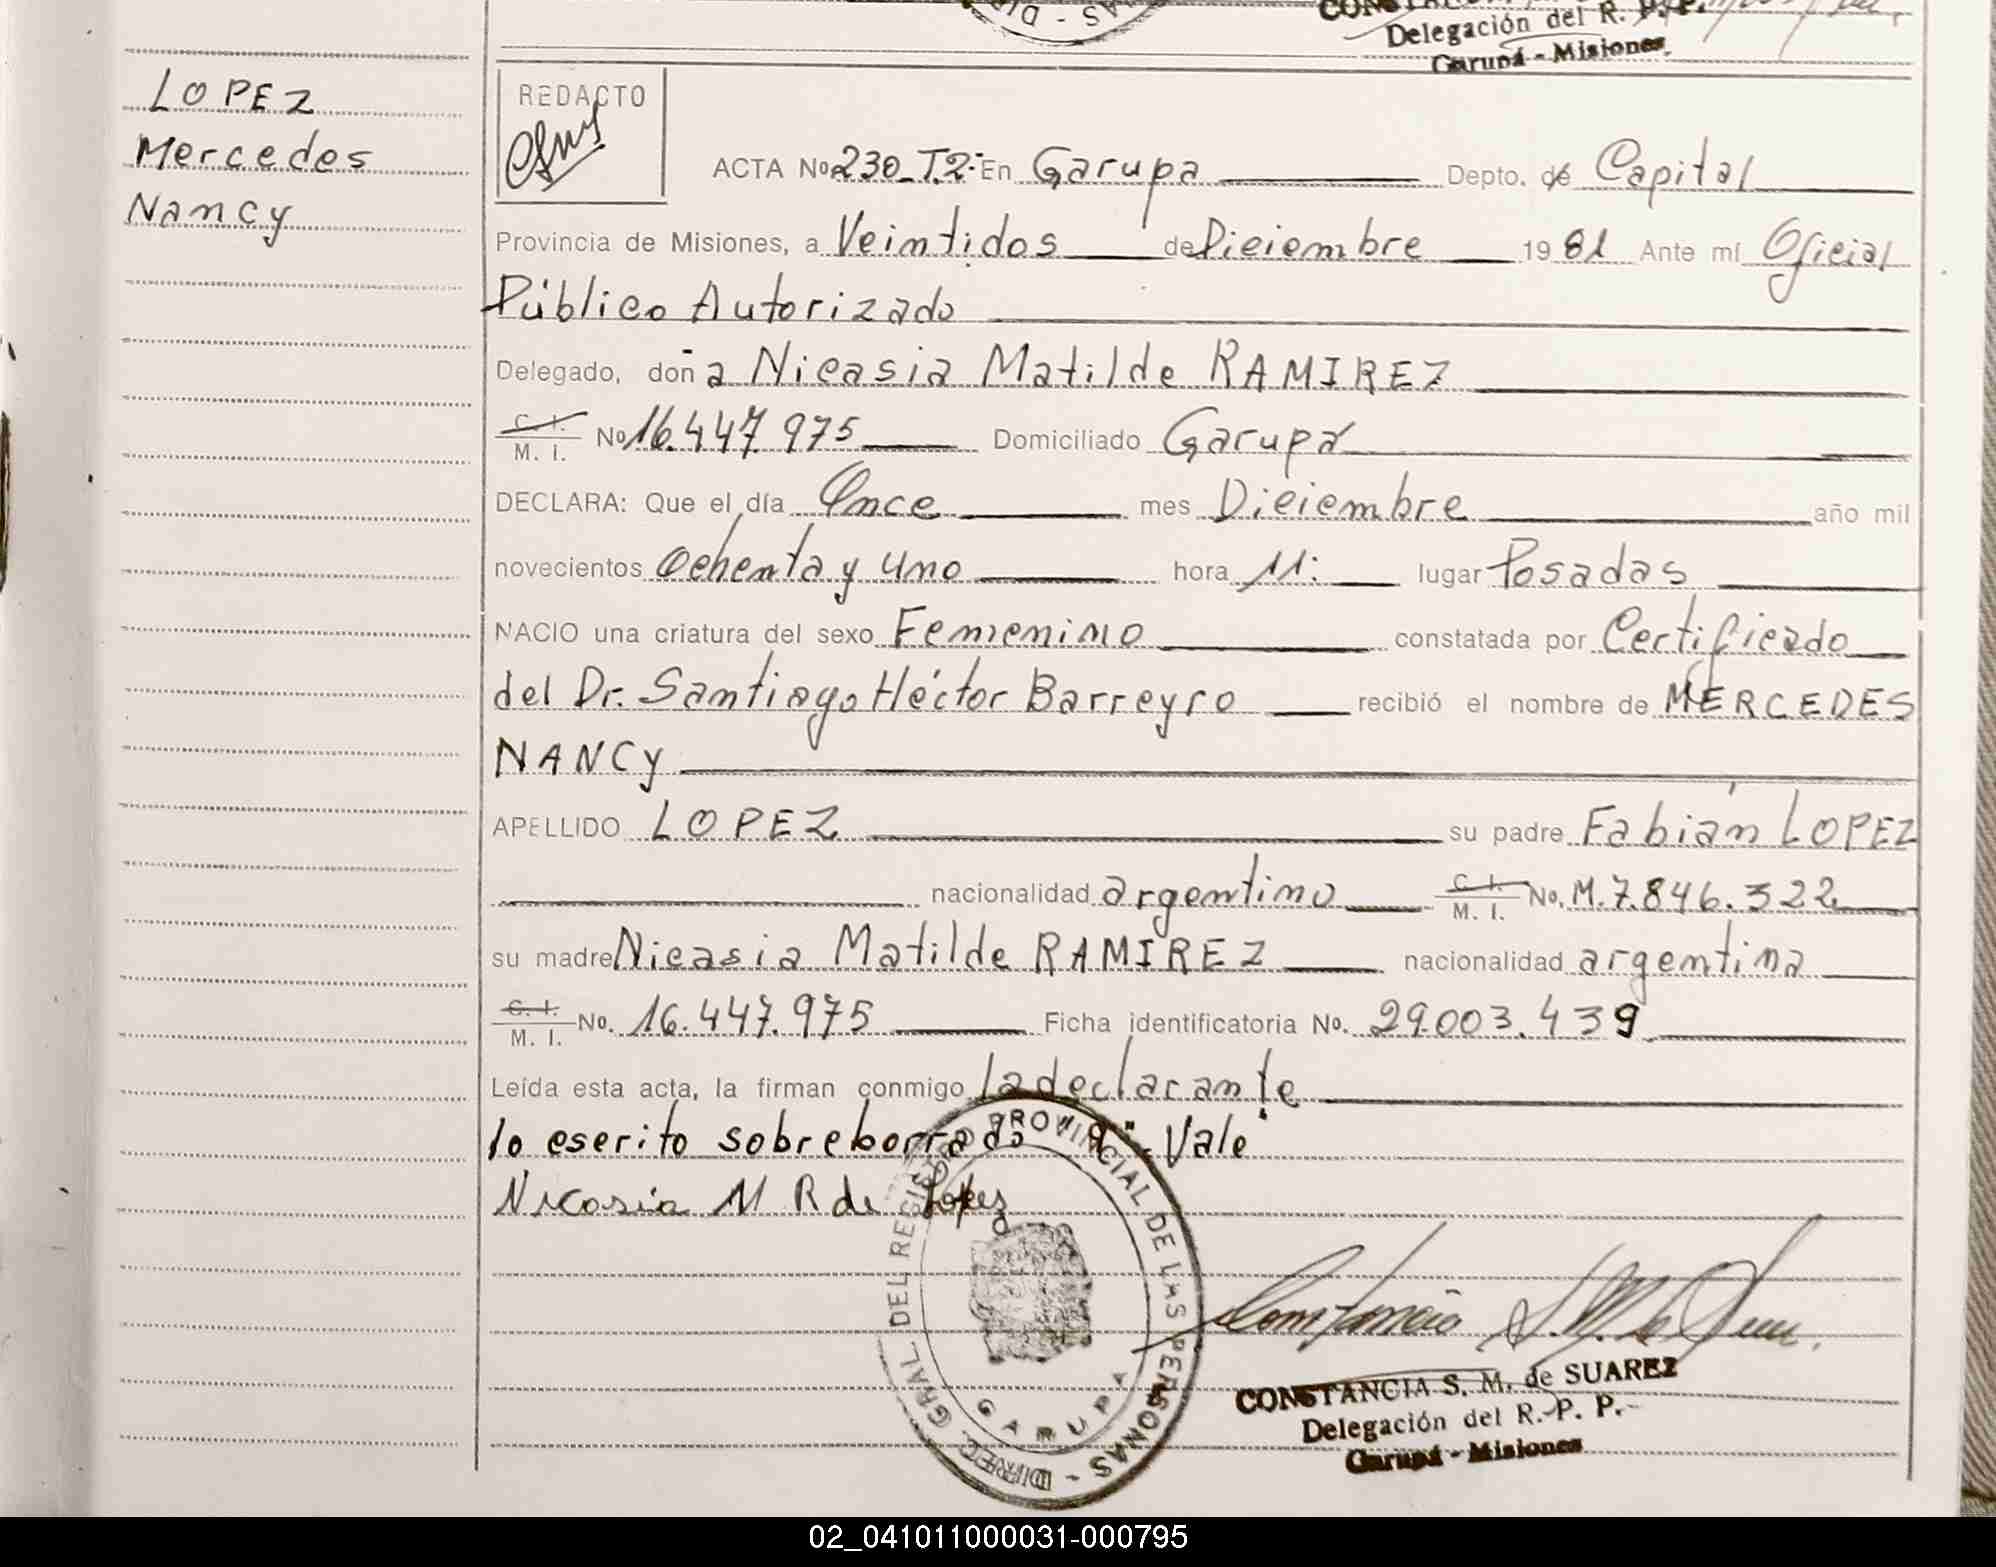 Delegación del R. P. P.
Garupá - Misiones
LOPEZ
Mercedes
Nancy
REDACTO
ACTA No 230_T.2- En Garupa Depto. de Capital
Provincia de Misiones, a Veintidos de Diciembre 1981 Ante mí Oficial
Público Autorizado
Delegado, doña Nicasia Matilde RAMIREZ
C. I.
M. I. No 16.447.975 Domiciliado Garupá
DECLARA: Que el día Once mes Diciembre año mil
novecientos Ochenta y uno hora 11: lugar Posadas
NACIO una criatura del sexo Femenino constatada por Certificado
del Dr. Santiago Héctor Barreyro recibió el nombre de MERCEDES
NANCY
APELLIDO LOPEZ su padre Fabián LOPEZ
nacionalidad argentino C. I.
M. I. No. M.7.846.322
su madre Nicasia Matilde RAMIREZ nacionalidad argentina
C. I.
M. I. No. 16.447.975 Ficha identificatoria No. 29.003.439
Leída esta acta, la firman conmigo la declarante
lo escrito sobreborrado "a" Vale
Nicasia M R de Lopez
DIREC. GRAL. DEL REGISTRO PROVINCIAL DE LAS PERSONAS -
GARUPA
CONSTANCIA S. M. de SUAREZ
Delegación del R. P. P.
Garupá - Misiones
02_041011000031-000795